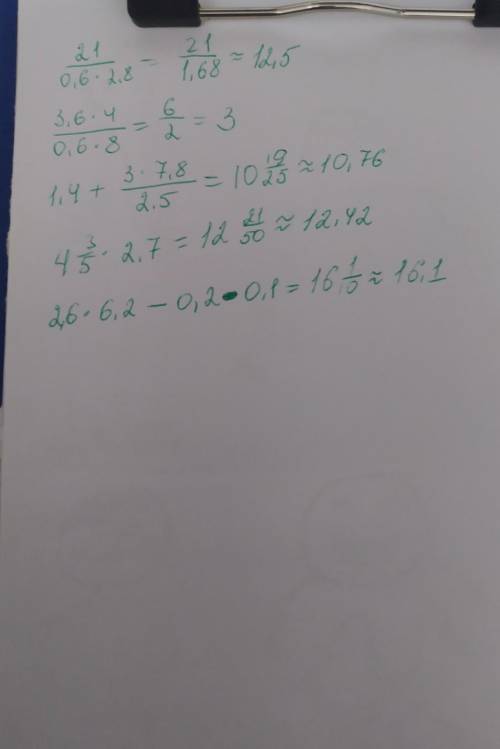 21/0,6·2,8 = 21/1,68 ≈ 12,5
3,6·4/0,6·8 = 6/2 = 3
1,4 + 3·7,8/2,5 = 10 19/25 ≈ 10,76
4 3/5 · 2,7 = 12 21/50 ≈ 12,42
2,6 · 6,2 – 0,2 · 0,1 = 16 1/10 ≈ 16,1